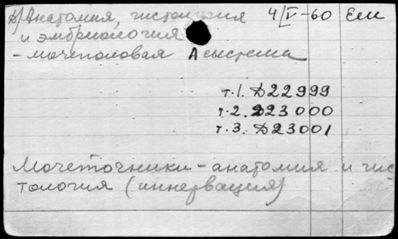 д) Анатомия, гистология 4/V-60 Еем
и эмбриология
- мочеполовая система
т.1. Д22999
т.2. Д23000
т.3. Д23001
Мочеточники - анатомия и гис
тология (иннервация)